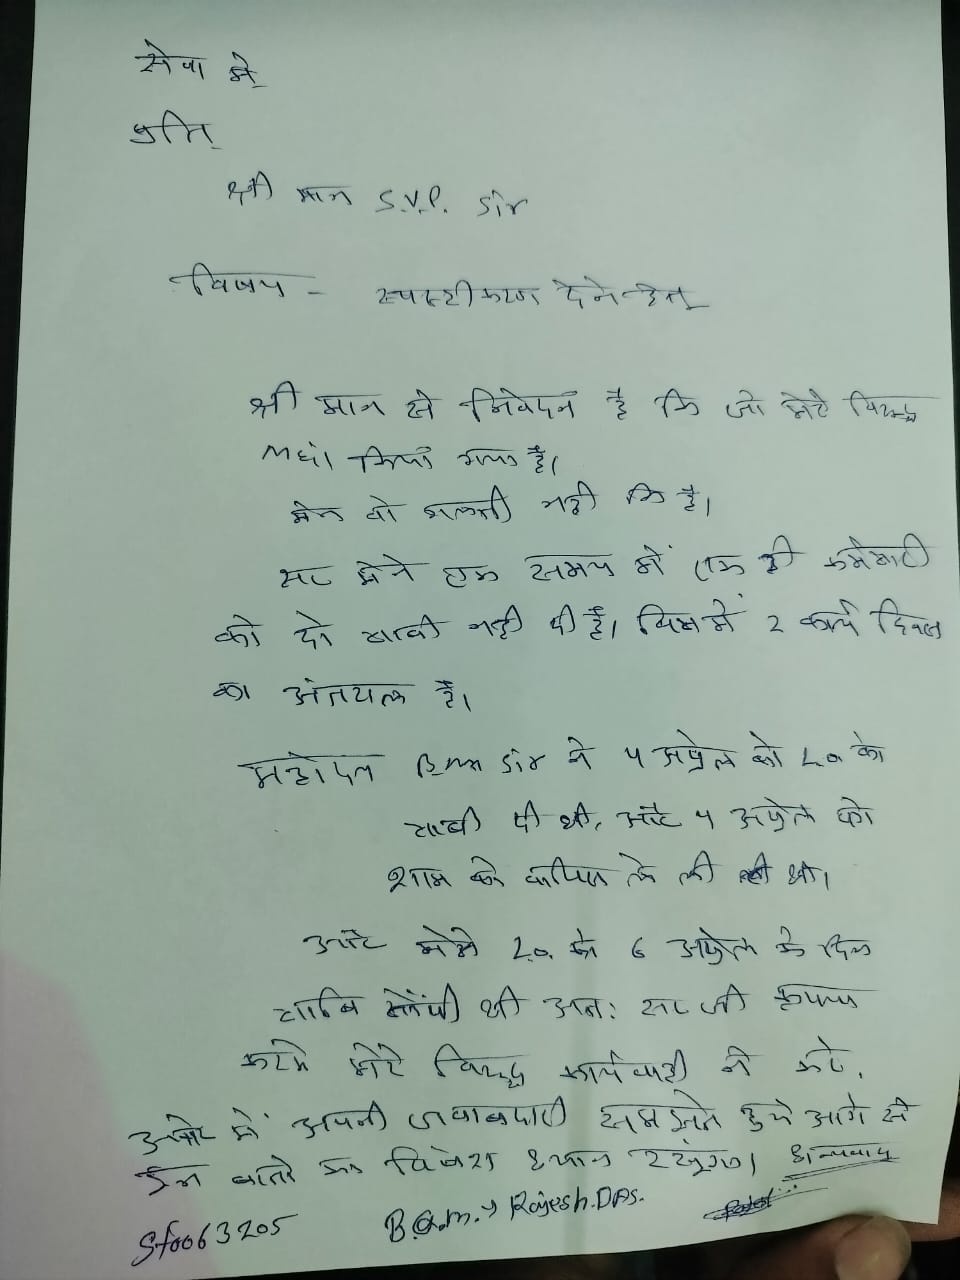 सेवा मे
प्रति
श्री मान S.V.P. Sir
विषय - स्पस्टीकरण देने हेतु
श्री मान से निवेदन है कि जो मेरे विरुद्ध
किया गया है।
मेन वो गलती नही कि है।
सर मेने एक समय में एक ही कर्मचारी
को दो चाबी नही दी है। जिसमें 2 कार्य दिवस
का अंतराल है।
महोदय Bmm Sir ने 4 अप्रेल को L.O. को
चाबी दी थी, और 4 अप्रेल को
शाम को वापिस ले ली थी।
और मेने L.O. को 6 अप्रेल के दिन
चाबि सोंपी थी अतः सर जी कृपया
करके मेरे विरुद्ध कार्यवाही ने करे,
और में अपनी जवाबदारी समझते हुये आगे से
इन बातो का विशेश ध्यान रखूंगा। धन्यवाद
Sf0063205 B.Q.m. Rajesh.DAs.